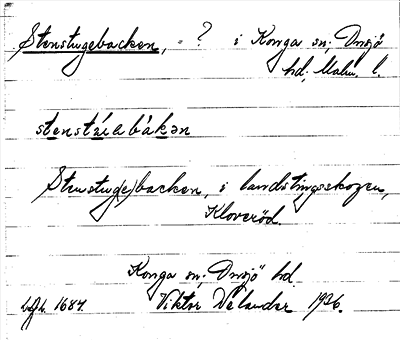 Stenstugebacken, = ? i Konga sn; Onsjö
hd, Malm. l.
stenstúəbákən
Stenstug(e)backen, i landstingsskogen,
Klöveröd.
Konga sn; Onsjö hd.
Viktor Welander 1926.
1684.